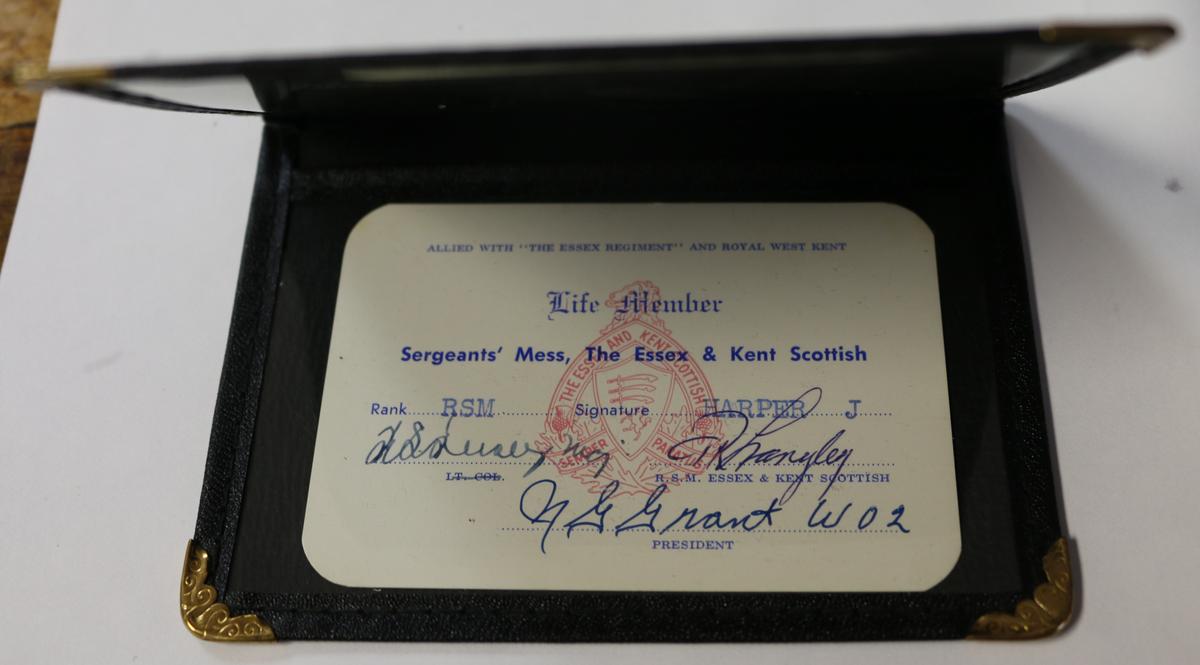 ALLIED WITH "THE ESSEX REGIMENT" AND ROYAL WEST KENT
Life Member
THE ESSEX AND KENT SCOTTISH
Sergeants' Mess, The Essex & Kent Scottish
Rank RSM Signature HARPER J
SEMPER PARATUS
LT. COL. R.S.M. ESSEX & KENT SCOTTISH
N G Grant WO2
PRESIDENT